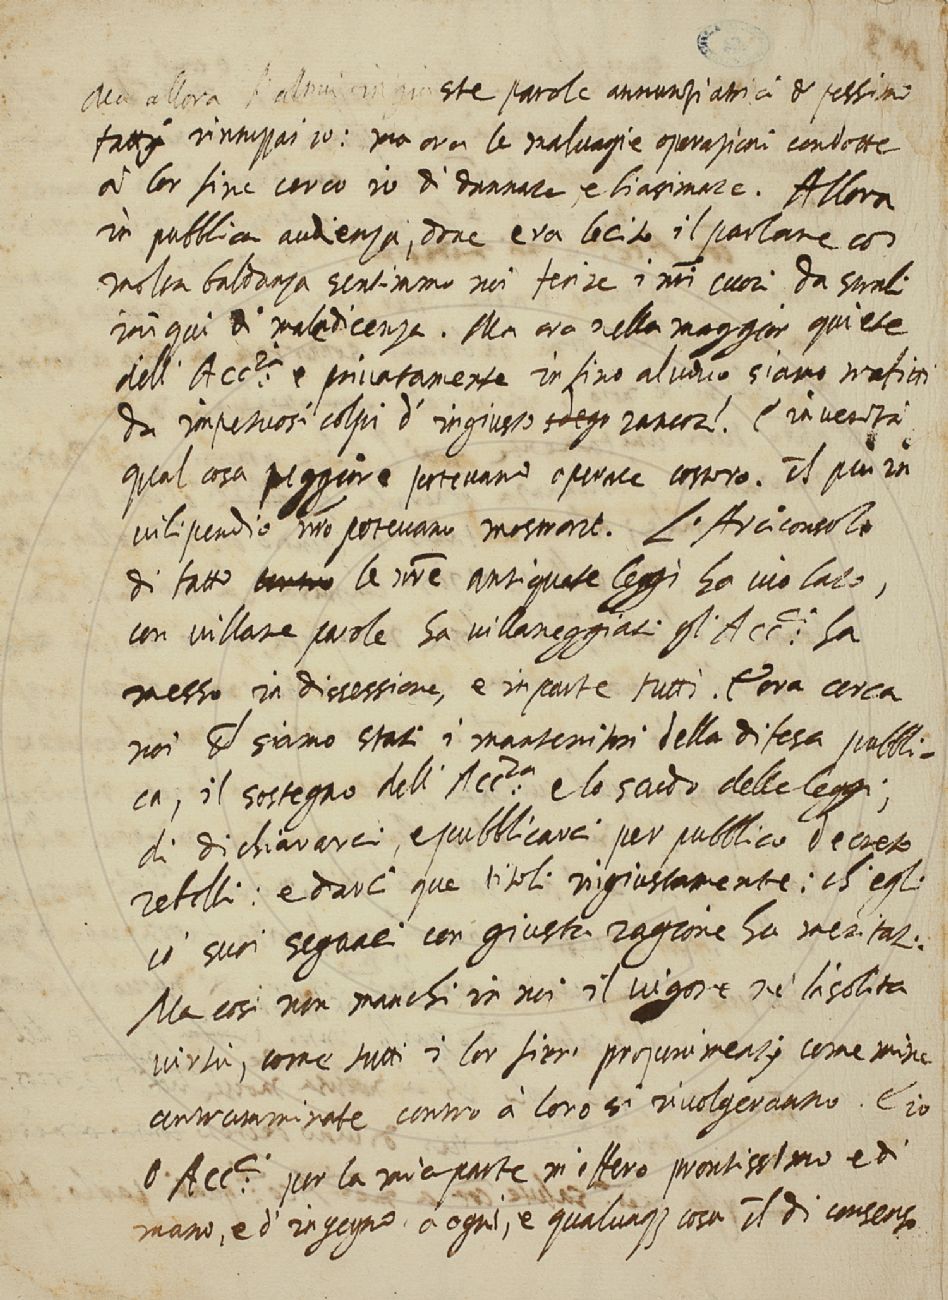 Ma allora l'altrui ingiuste parole annunziatrici di pessimi
fatti rintuzzai io: ma ora le malvagie operazioni condotte
à lor fine cerco io di dannare, e biasimare. Allora
in pubblica audienza, dove era lecito il parlare cō
molta baldanza sentimmo noi ferire i nrī cuori da strali
iniqui di maledicenza. Ma ora nella maggior quiete
dell' Acc.ᶻᵃ e privatamente in fino al vivo siamo trafitti
da impetuosi colpi d' ingiusto sdegno rancor. E in verità
qual cosa peggiore potevano operare costoro. il più in
vilipendio nrō potevano mostrare. L'Arciconsolo
di fatto le nrē antiquate leggi ha violato,
con villane parole ha villaneggiati gl' Acc.ᶜⁱ ha
messo in dissessione, e in parte tutti. E ora cerca
noi siamo stati i mantenitori della difesa pubbli-
ca, il sostegno dell' Acc.ᶻᵃ e lo scudo delle leggi;
di dichiararci, e pubblicarci per pubblico decreto
rebelli: e darci que titoli ingiustamente: ch'egli
cō suoi seguaci con giusta ragione ha meritati.
Ma così non manchi in noi il vigore nè la solita
virtù, come tutti i lor fieri proponimenti come mine
contramminate contro à loro si rivolgeranno. E io
O Acc.ᶜⁱ per la mia parte m'offero prontissimo e di
mano, e d' ingegno a ogni, e qualunq; cosa di consenso